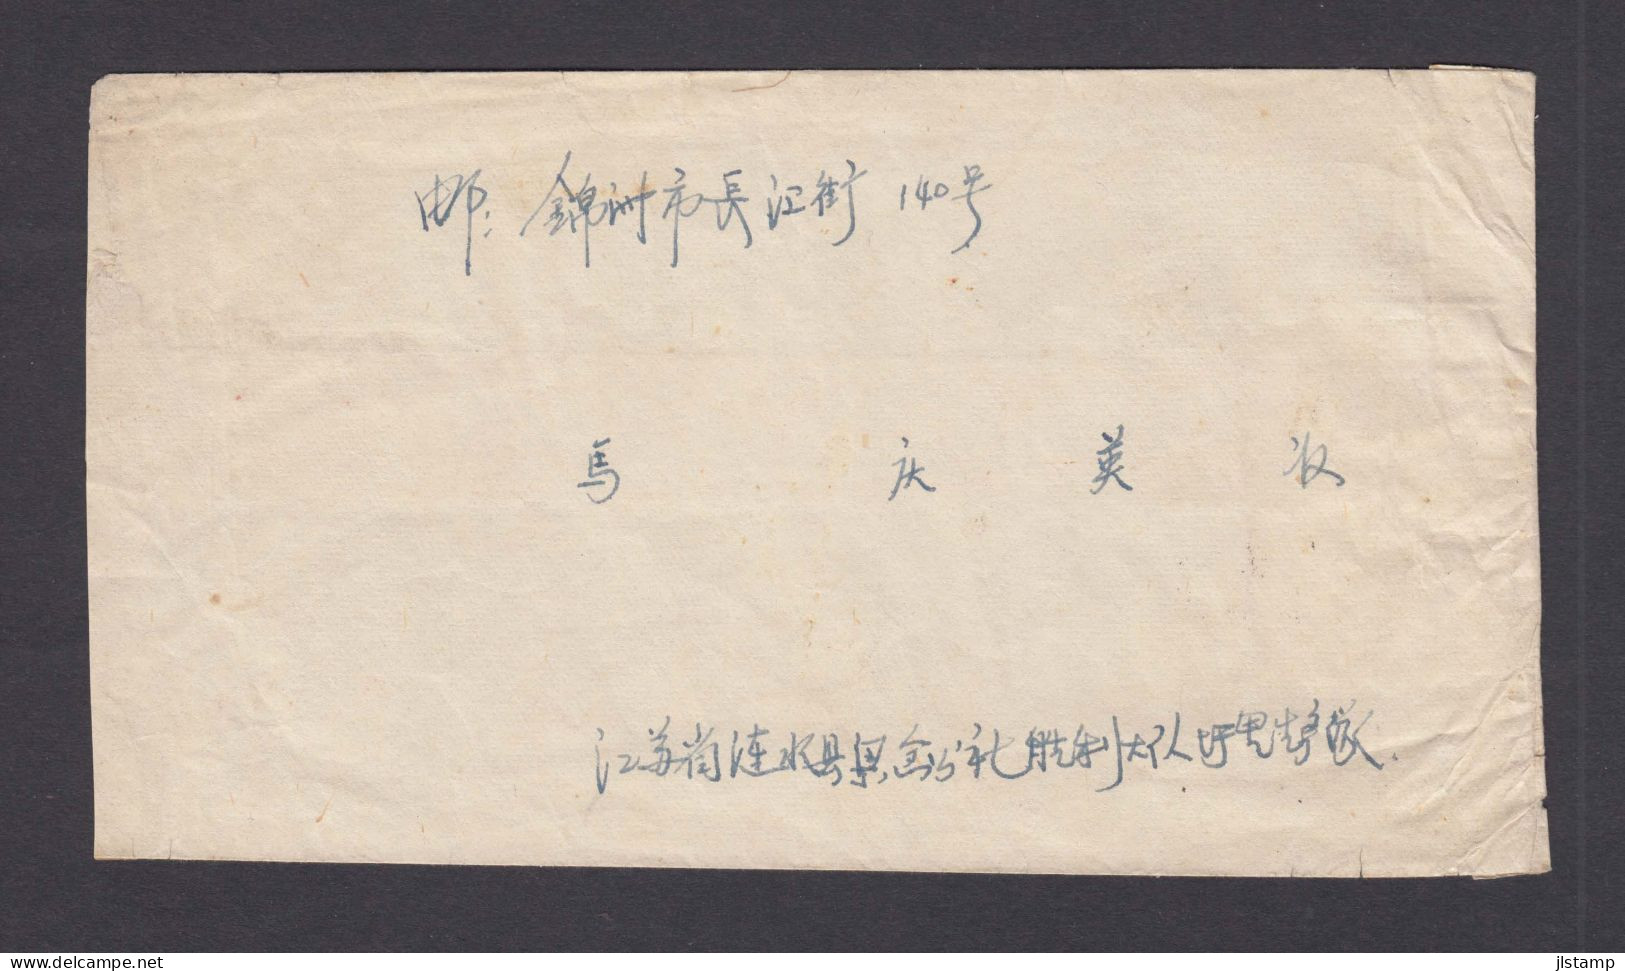 邮: 錦州市長江街 140号
馬 庆 英 收
江苏省涟水县 公社胜利大队圩里生产队.
delcampe.net
jlstamp